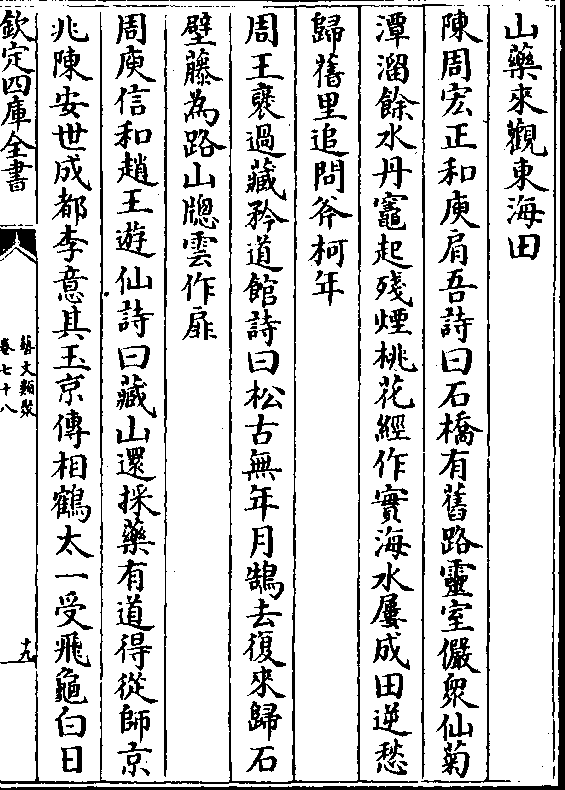 山藥來觀東海田
陳周宏正和庾肩吾詩曰石橋有舊路靈室儼衆仙菊
潭溜餘水丹竈起殘煙桃花經作實海水屢成田逆愁
歸舊里追問斧柯年
周王襃過藏矜道館詩曰松古無年月鵠去復來歸石
壁藤為路山牕雲作扉
周庾信和趙王遊仙詩曰藏山還採藥有道得從師京
兆陳安世成都李意其玉京傳相鶴太一受飛龜白日
欽定四庫全書
藝文類聚
卷七十八
十九